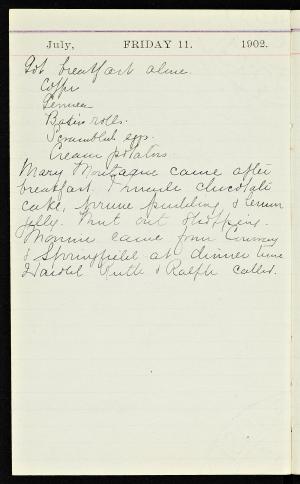 July, FRIDAY 11. 1902.
Got breakfast alone.
Coffee
Butter rolls.
Scrambled eggs.
Cream potatoes
Mary Montague came after
breakfast. I made chocolate
cake, prune pudding & lemon
jelly. Went out shopping.
Mamma came from
& Springfield at dinner time
Harold Ruth & Ralph called.